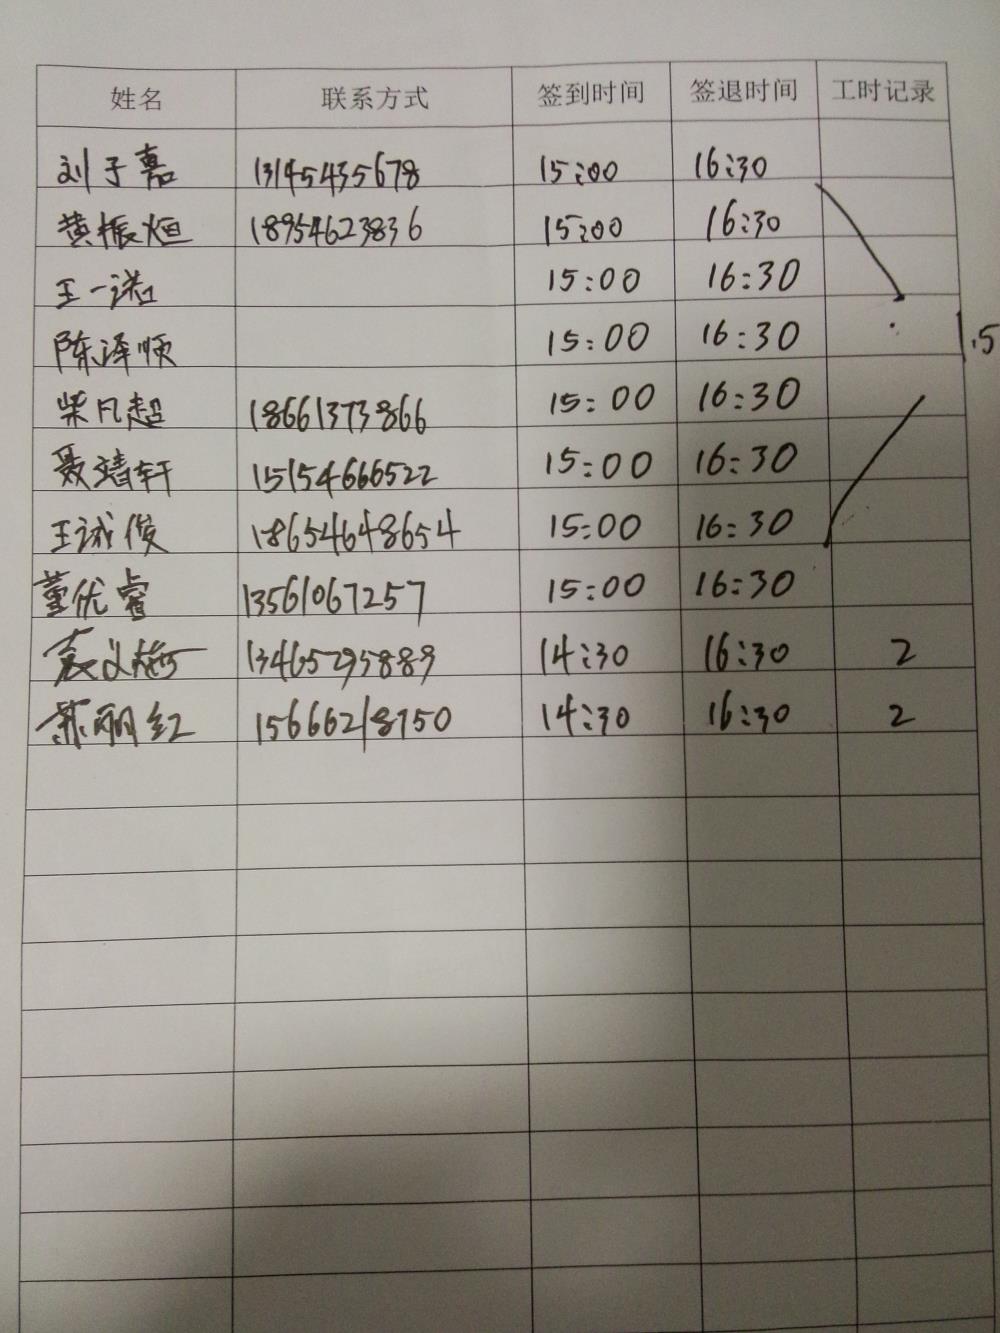 姓名 联系方式 签到时间 签退时间 工时记录
刘子嘉 13145435678 15:00 16:30
黄振烜 18954623836 15:00 16:30
王一诺 15:00 16:30
陈泽顺 15:00 16:30 1.5
柴凡超 18661373866 15:00 16:30
聂靖轩 15154666522 15:00 16:30
王诚俊 18654648654 15:00 16:30
董优睿 13561067257 15:00 16:30
13465295889 14:30 16:30 2
苏丽红 15666218750 14:30 16:30 2